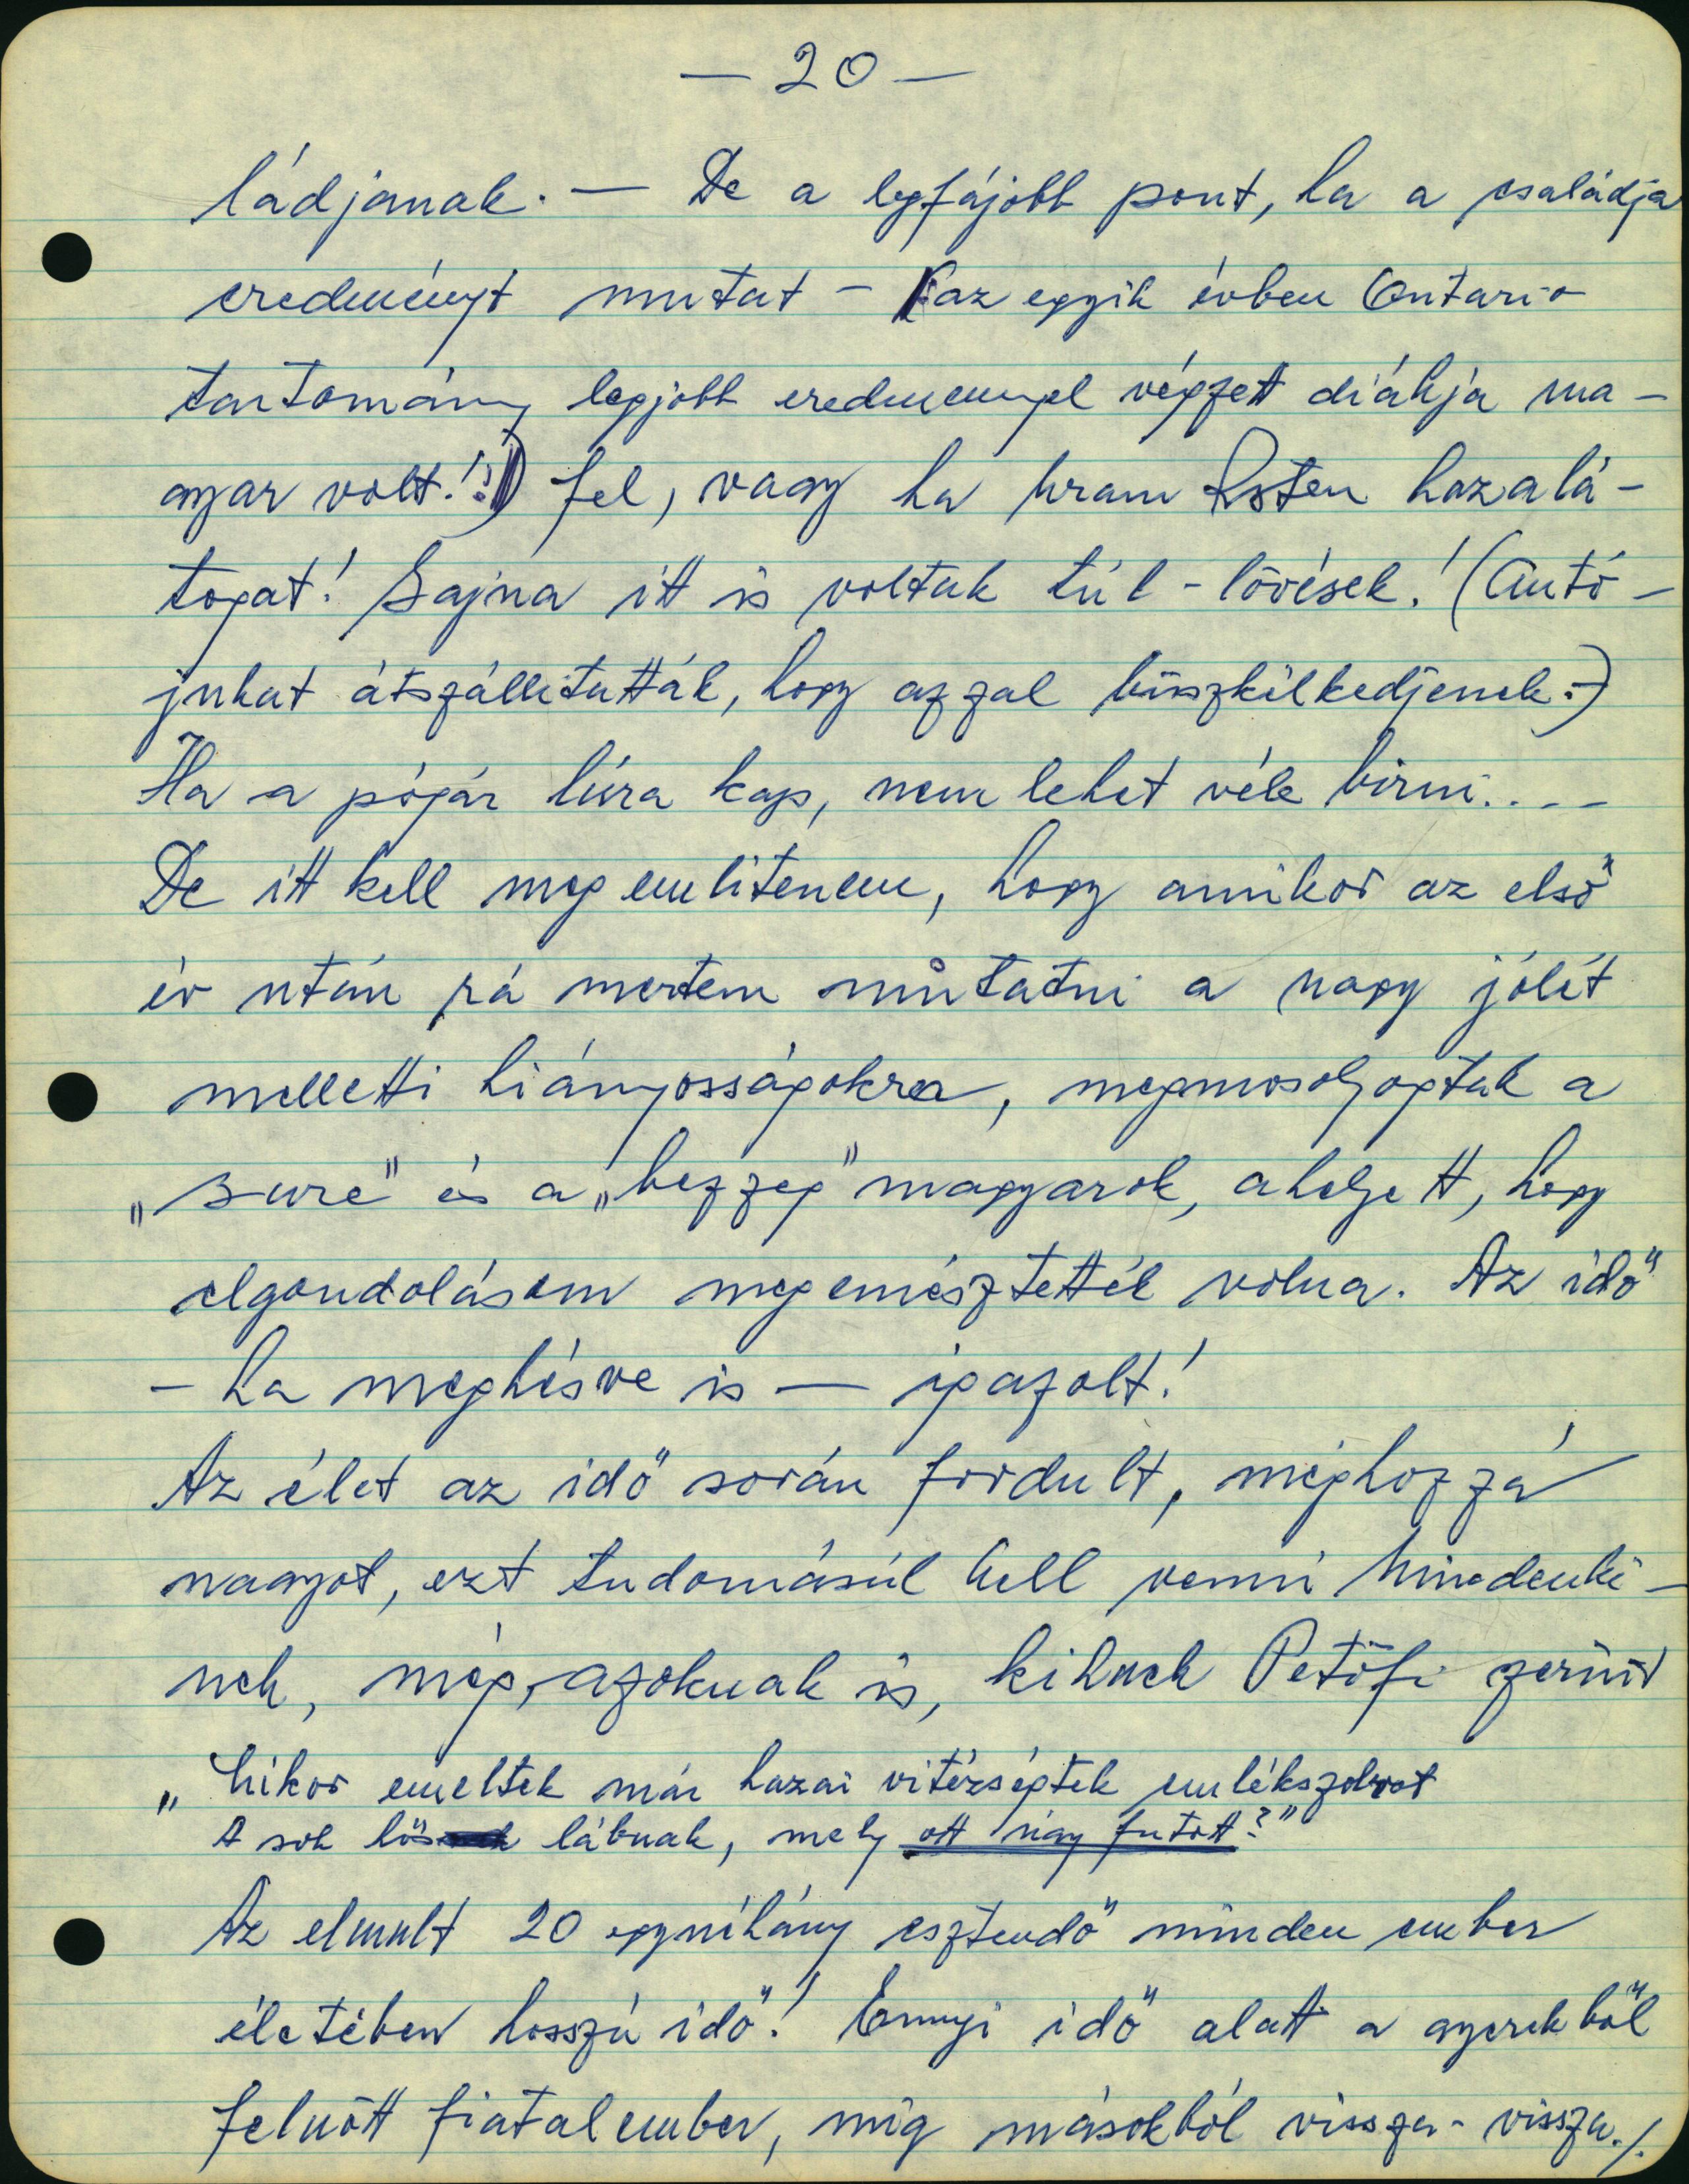 — 20 —
ládjanak. — De a legfájobb pont, ha a családja
eredményt mutat – (az egyik évben Ontario
tartomány legjobb eredmennyel végzett diákja ma-
gyar volt!!) fel, vagy ha uram Isten hazalá-
togat! Sajna itt is voltak túl-lövések! (Autó-
jukat átszállitatták, hogy azzal büszkélkedjenek.)
Ha a pógár lúra kap, nem lehet véle birni....
De itt kell meg emlitenem, hogy amikor az első
év után rá mertem mutatni a nagy jólét
melletti hiányosságokra, megmosolyogtak a
„sure" és a „bezzeg" magyarok, ahelyett, hogy
elgondolásom megemésztették volna. Az idő
– ha megkésve is — igazolt!
Az élet az idő során fordult, méghozzá
nagyot, ezt tudomásúl kell venni mindenki-
nek, még azoknak is, kiknek Petőfi szerint
„Mikor emeltek már hazai vitézségtek emlékszobrot
A sok hős lábnak, mely ott úgy futott?"
Az elmult 20 egynéhány esztendő minden ember
életében hosszú idő! Ennyi idő alatt a gyerekből
felnőtt fiatal ember, mig másokból vissza-vissza./.